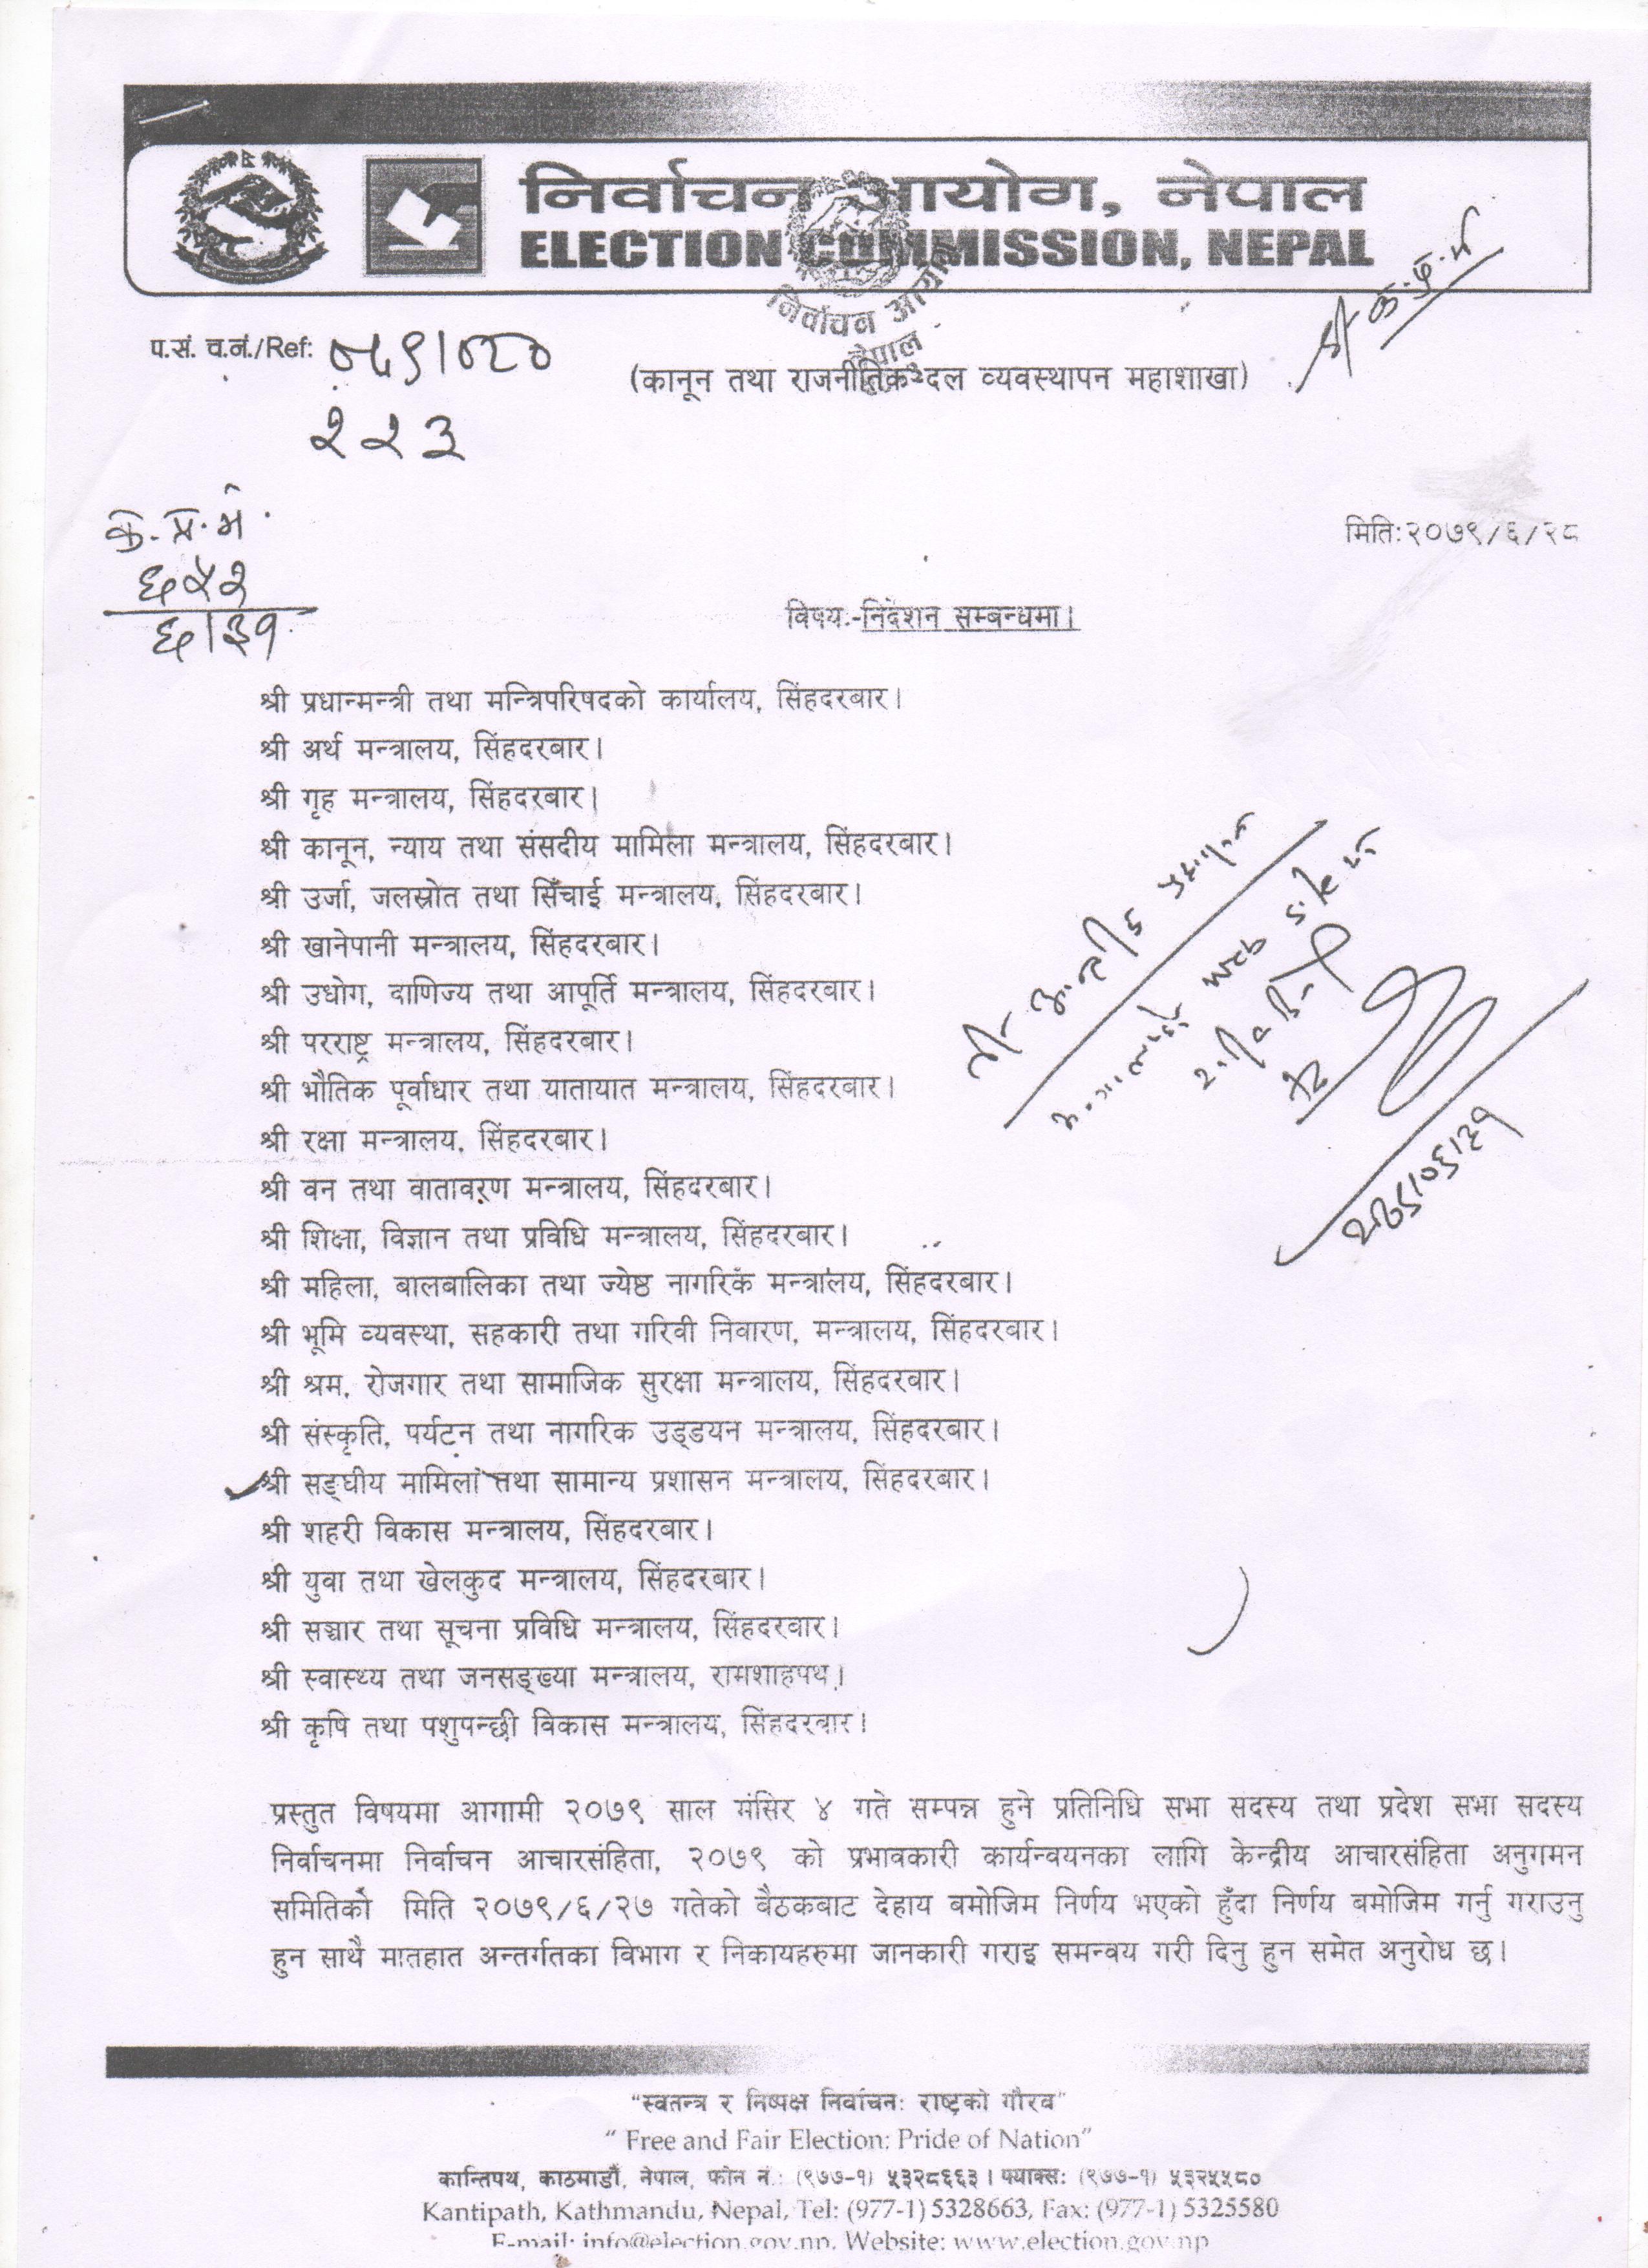 निर्वाचन आयोग, नेपाल
ELECTION COMMISSION, NEPAL
निर्वाचन आयोग
नेपाल
श्री क.प्र.म
प.सं. च.नं./Ref: ०७९/०८०
(कानून तथा राजनीतिक दल व्यवस्थापन महाशाखा)
२२३
क.प्र.म.
६५२
६/३१
मिति:२०७९/६/२८
विषय:-निर्देशन सम्बन्धमा।
श्री प्रधान्मन्त्री तथा मन्त्रिपरिषदको कार्यालय, सिंहदरबार।
श्री अर्थ मन्त्रालय, सिंहदरबार।
श्री गृह मन्त्रालय, सिंहदरबार।
श्री कानून, न्याय तथा संसदीय मामिला मन्त्रालय, सिंहदरबार।
श्री उर्जा, जलस्रोत तथा सिँचाई मन्त्रालय, सिंहदरबार।
श्री खानेपानी मन्त्रालय, सिंहदरबार।
श्री उधोग, वाणिज्य तथा आपूर्ति मन्त्रालय, सिंहदरबार।
श्री परराष्ट्र मन्त्रालय, सिंहदरबार।
श्री भौतिक पूर्वाधार तथा यातायात मन्त्रालय, सिंहदरबार।
श्री रक्षा मन्त्रालय, सिंहदरबार।
श्री वन तथा वातावरण मन्त्रालय, सिंहदरबार।
श्री शिक्षा, विज्ञान तथा प्रविधि मन्त्रालय, सिंहदरबार।
श्री महिला, बालबालिका तथा ज्येष्ठ नागरिक मन्त्रालय, सिंहदरबार।
श्री भूमि व्यवस्था, सहकारी तथा गरिवी निवारण, मन्त्रालय, सिंहदरबार।
श्री श्रम, रोजगार तथा सामाजिक सुरक्षा मन्त्रालय, सिंहदरबार।
श्री संस्कृति, पर्यटन तथा नागरिक उड्डयन मन्त्रालय, सिंहदरबार।
श्री सङ्घीय मामिला तथा सामान्य प्रशासन मन्त्रालय, सिंहदरबार।
श्री शहरी विकास मन्त्रालय, सिंहदरबार।
श्री युवा तथा खेलकुद मन्त्रालय, सिंहदरबार।
श्री सञ्चार तथा सूचना प्रविधि मन्त्रालय, सिंहदरबार।
श्री स्वास्थ्य तथा जनसङ्ख्या मन्त्रालय, रामशाहपथ।
श्री कृषि तथा पशुपन्छी विकास मन्त्रालय, सिंहदरबार।
web
२०७९/०६/३१
प्रस्तुत विषयमा आगामी २०७९ साल मंसिर ४ गते सम्पन्न हुने प्रतिनिधि सभा सदस्य तथा प्रदेश सभा सदस्य
निर्वाचनमा निर्वाचन आचारसंहिता, २०७९ को प्रभावकारी कार्यन्वयनका लागि केन्द्रीय आचारसंहिता अनुगमन
समितिको मिति २०७९/६/२७ गतेको बैठकबाट देहाय बमोजिम निर्णय भएको हुँदा निर्णय बमोजिम गर्नु गराउनु
हुन साथै मातहात अन्तर्गतका विभाग र निकायहरुमा जानकारी गराइ समन्वय गरी दिनु हुन समेत अनुरोध छ।
“स्वतन्त्र र निष्पक्ष निर्वाचन: राष्ट्रको गौरव”
“ Free and Fair Election: Pride of Nation”
कान्तिपथ, काठमाडौं, नेपाल, फोन नं.: (९७७-१) ५३२८६६३ । फ्याक्स: (९७७-१) ५३२५५८०
Kantipath, Kathmandu, Nepal, Tel: (977-1) 5328663, Fax: (977-1) 5325580
E-mail: info@election.gov.np, Website: www.election.gov.np